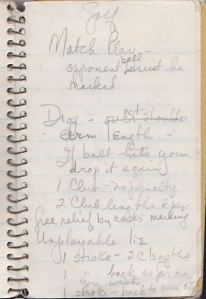 Golf
Match Play -
opponent ball must be
marked
Drop - not over shoulder
arm length -
If ball hits you
drop it again
1 Club - no penalty
2 Club lengths
free relief by rocks marking
Unplayable lie
1 stroke - 2 C lengths
1 " back as far as
you wish
1 stroke - back to